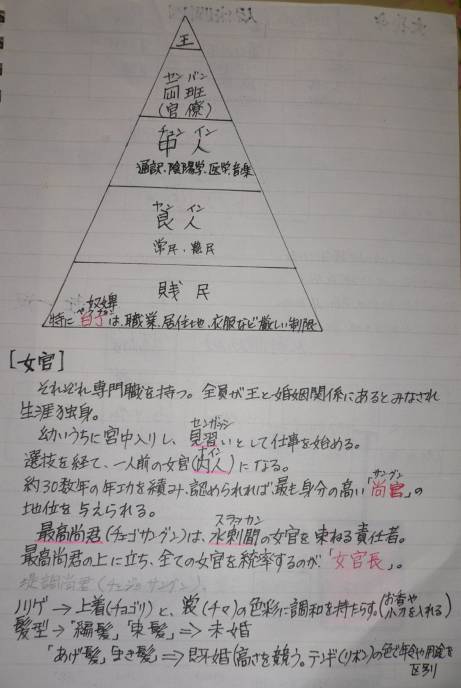 王
ヤン バン
両班
(官僚)
チュン イン
中人
通訳、陰陽学、医学、音楽
ヤン イン
良人
常民、農民
賎民
奴婢
特に白丁は、職業、居住地、衣服など厳しい制限
[女官]
それぞれ専門職を持つ。全員が王と婚姻関係にあるとみなされ
生涯独身。
幼いうちに宮中入りし、見習いとして仕事を始める。
選抜を経て、一人前の女官(内人)になる。
ナイン
サングン
約30数年の年功を積み、認められれば、最も身分の高い「尚宮」の
地位を与えられる。
スラッカン
最高尚君(チェゴサングン)は、水剌間の女官を束ねる責任者。
最高尚君の上に立ち、全ての女官を統率するのが「女官長」。
ノリゲ→上着(チョゴリ)と、裳(チマ)の色彩に調和を持たらす。(お香や小刀を入れる)
髪型→「編髪」「束髪」⇒未婚
「あげ髪」「まき髪」⇒既婚(高さを競う。テンギ(リボン)の色で年令や用途を区別